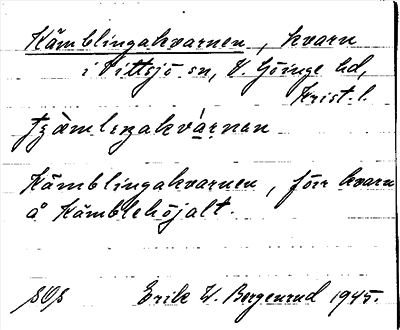 Kämblingakvarnen, kvarn
i Vittsjö sn, V. Göinge hd,
Krist. l.
Kämblingakvarnen, förr kvarn
å Kämblehöjalt.
Erik W. Bergenrud 1945.